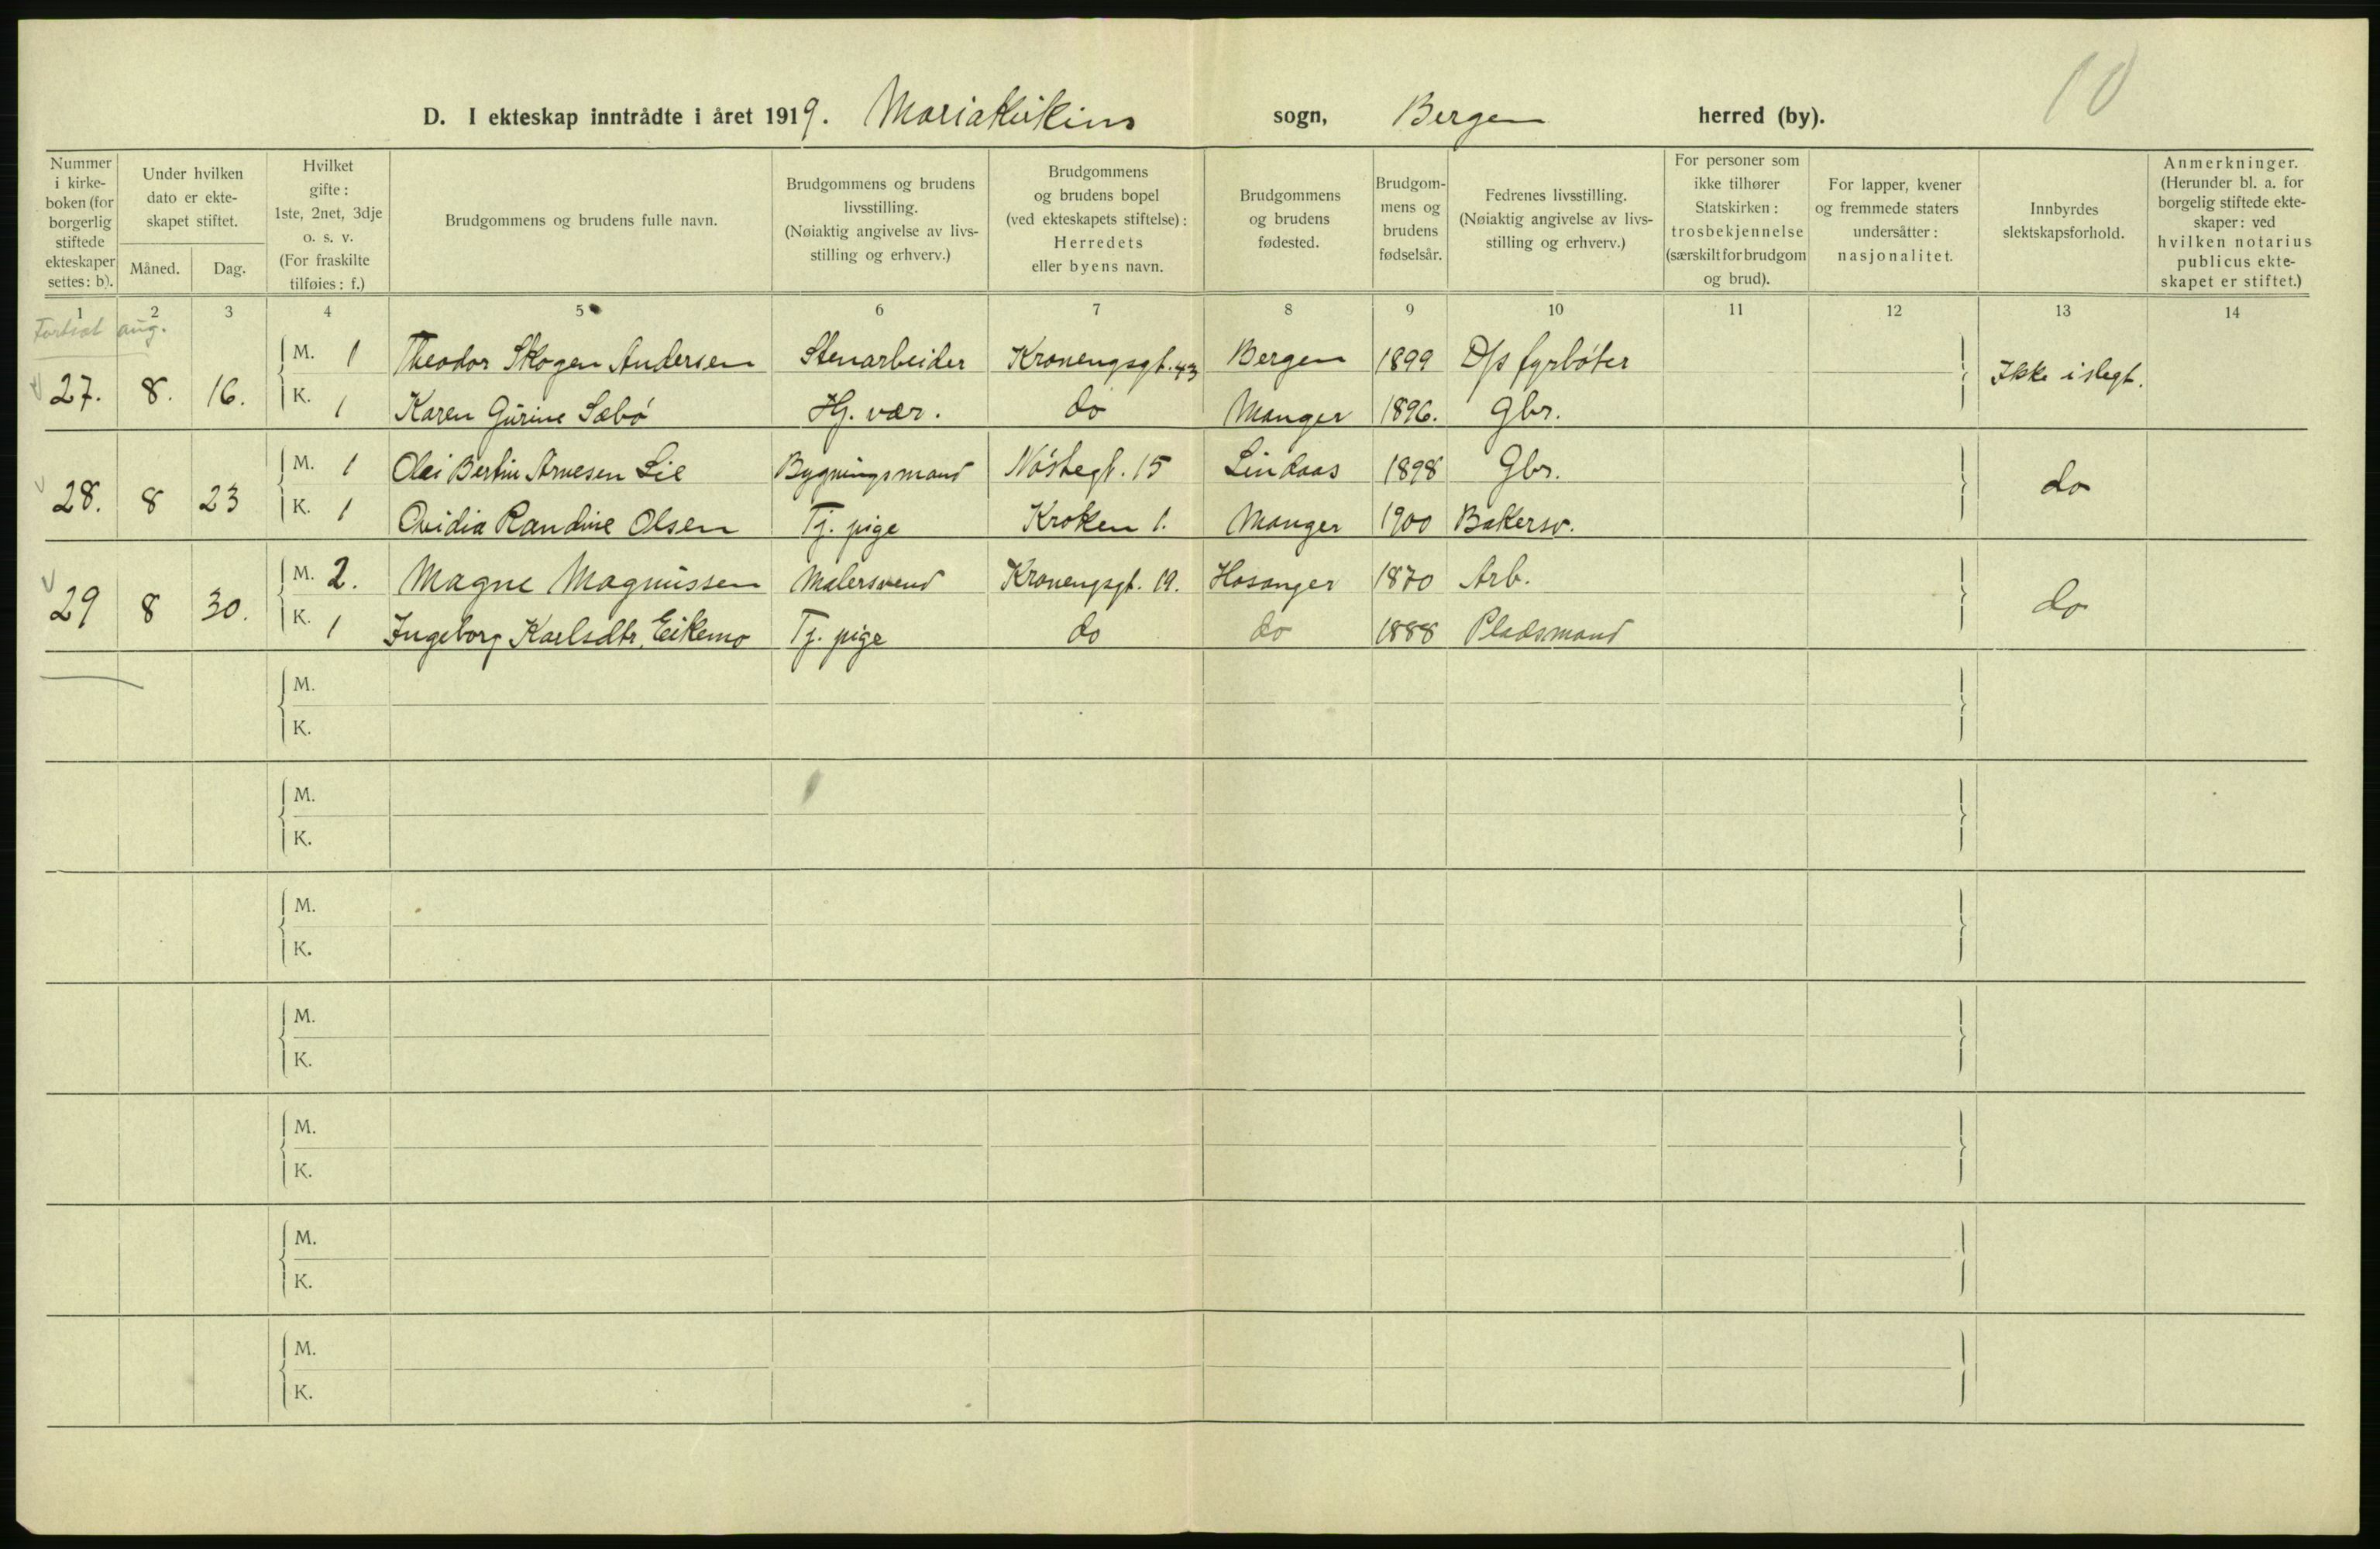 10
D. I ekteskap inntrådte i året 1919. Mariakirkens sogn, Bergen herred (by).
Nummer i kirke-boken (for borgerlig stiftede ekteskaper settes: b).
Under hvilken dato er ekte-skapet stiftet.
Måned. Dag.
Hvilket gifte: 1ste, 2net, 3dje o. s. v. (For fraskilte tilføies: f.)
Brudgommens og brudens fulle navn.
Brudgommens og brudens livsstilling. (Nøiaktig angivelse av livs-stilling og erhverv.)
Brudgommens og brudens bopel (ved ekteskapets stiftelse): Herredets eller byens navn.
Brudgommens og brudens fødested.
Brudgom-mens og brudens fødselsår.
Fedrenes livsstilling. (Nøiaktig angivelse av livs-stilling og erhverv.)
For personer som ikke tilhører Statskirken: trosbekjennelse (særskilt for brudgom og brud).
For lapper, kvener og fremmede staters undersåtter: nasjonalitet.
Innbyrdes slektskapsforhold.
Anmerkninger. (Herunder bl. a. for borgelig stiftede ekte-skaper: ved hvilken notarius publicus ekte-skapet er stiftet.)
1 2 3 4 5 6 7 8 9 10 11 12 13 14
Fortsat aug.
27. 8. 16. M. 1 Theodor Skogen Andersen Stenarbeider Kronengsgt. 43 Bergen 1899 D/s fyrbøter Ikke i slegt.
K. 1 Karen Gurine Sæbø Hj. vær. do Manger 1896. Gbr.
28. 8 23 M. 1 Olai Bertin Arnesen Lie Bygningsmand Nøstegt. 15 Lindaas 1898 Gbr. do
K. 1 Ovidia Randine Olsen Tj. pige Kroken 1. Manger 1900 Bakersv.
29 8 30. M. 2. Magne Magnussen Malersvend Kronengsgt. 19. Hosanger 1870 Arb. do
K. 1 Ingeborg Karlsdtr. Eikemo Tj. pige do do 1888 Pladsmand
M.
K.
M.
K.
M.
K.
M.
K.
M.
K.
M.
K.
M.
K.